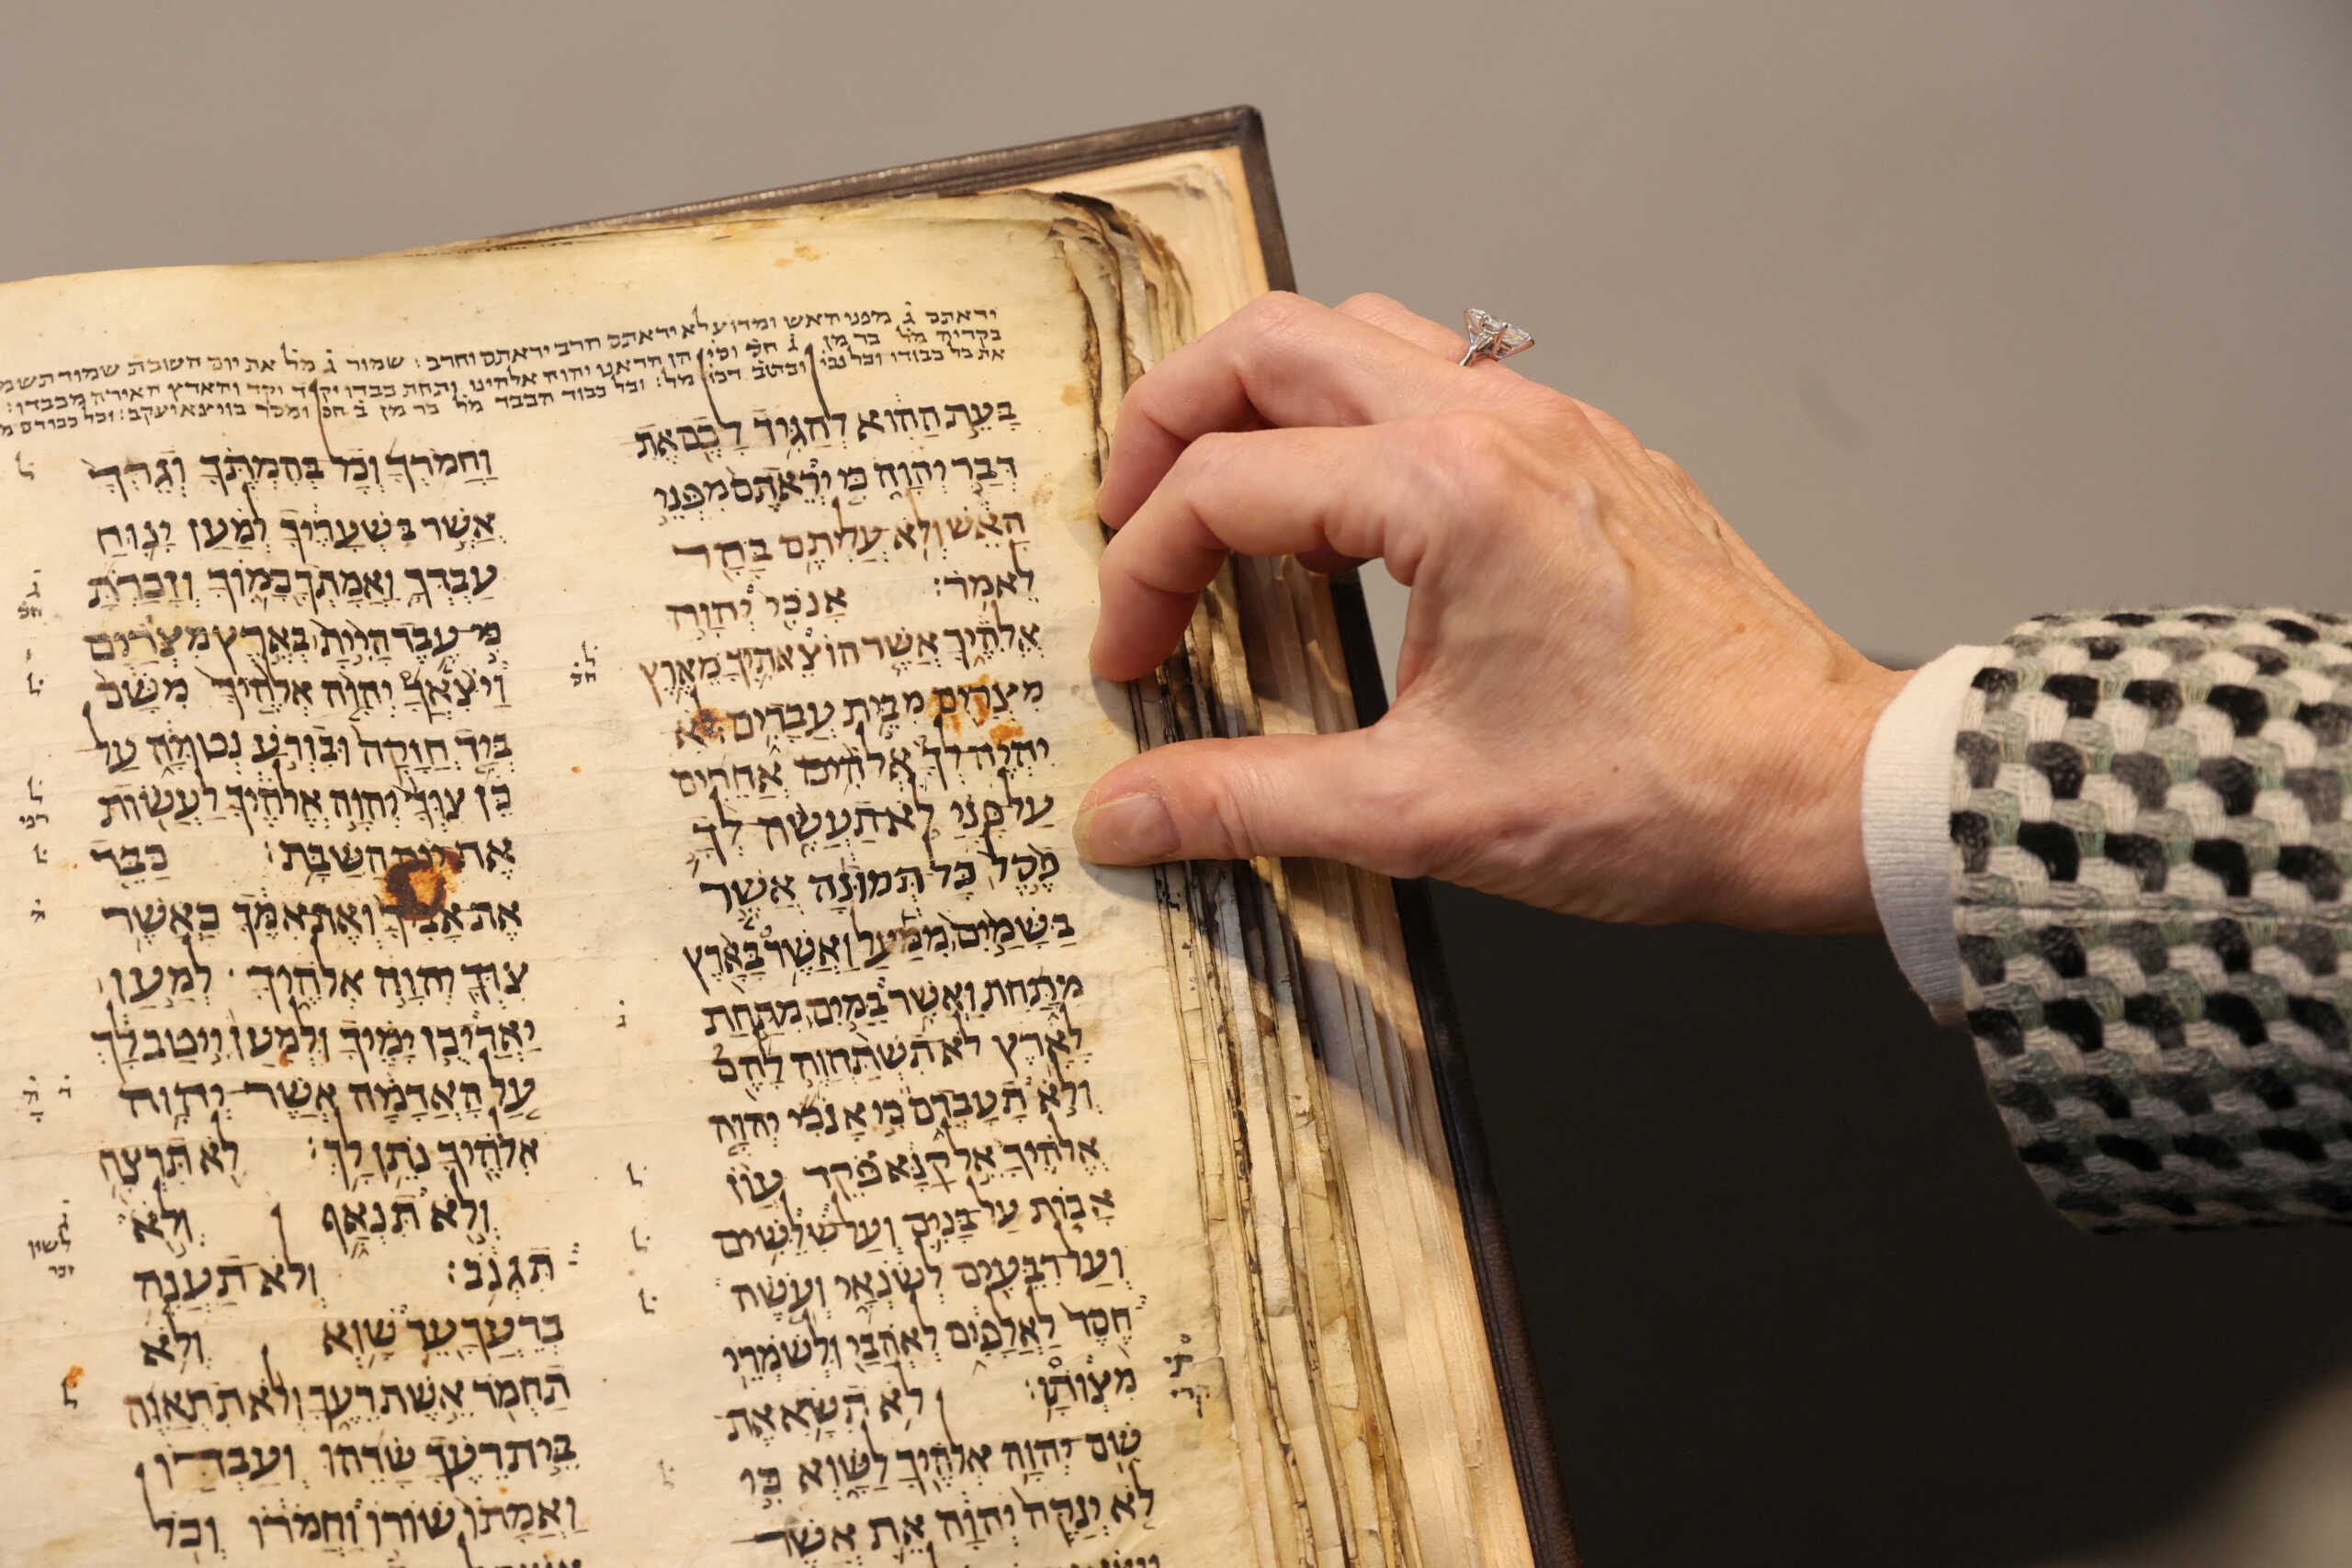 יראתם ג מפני האש ומדוע לא יראתם חרב יראתם וחרב : שמור ג מל את יום השבת
בעת ההוא להגיד לכם את
דבר יהוה כי יראתם מפני
האש ולא עליתם בהר
לאמר: אנכי יהוה
אלהיך אשר הוצאתיך מארץ
מצרים מבית עבדים לא
יהיה לך אלהים אחרים
על פני לא תעשה לך
פסל כל תמונה אשר
בשמים ממעל ואשר בארץ
מתחת ואשר במים מתחת
לארץ לא תשתחוה להם
ולא תעבדם כי אנכי יהוה
אלהיך אל קנא פקד עון
אבות על בנים ועל שלשים
ועל רבעים לשנאי ועשה
חסד לאלפים לאהבי ולשמרי
מצותו: לא תשא את
שם יהוה אלהיך לשוא כי
לא ינקה יהוה את אשר
וחמרך וכל בהמתך וגרך
אשר בשעריך למען ינוח
עבדך ואמתך כמוך וזכרת
כי עבד היית בארץ מצרים
ויצאך יהוה אלהיך משם
ביד חזקה ובזרע נטויה על
כן צוך יהוה אלהיך לעשות
את יום השבת: כבד
את אביך ואת אמך כאשר
צוך יהוה אלהיך למען
יאריכן ימיך ולמען ייטב לך
על האדמה אשר יהוה
אלהיך נתן לך: לא תרצח
ולא תנאף ולא
תגנב: ולא תענה
ברעך עד שוא ולא
תחמד אשת רעך ולא תתאוה
בית רעך שדהו ועבדו
ואמתו שורו וחמרו וכל